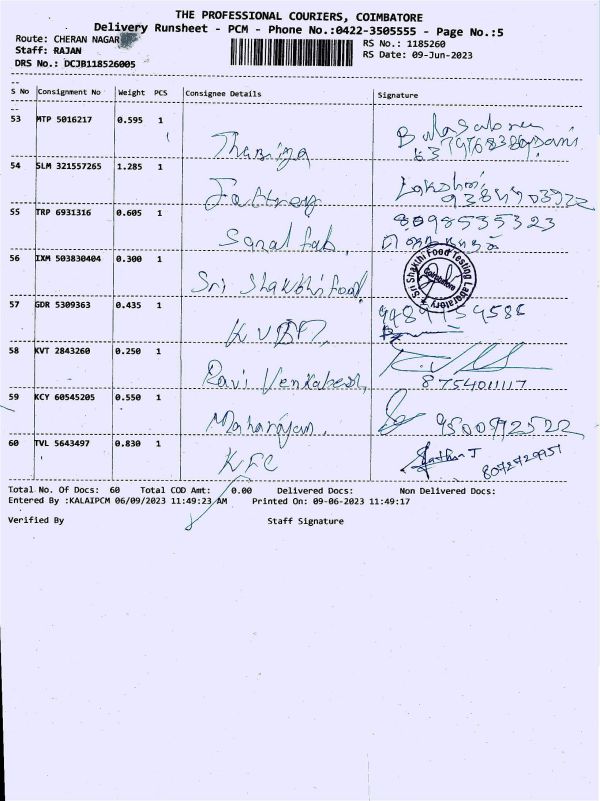 THE PROFESSIONAL COURIERS, COIMBATORE
Delivery Runsheet - PCM - Phone No.:0422-3505555 - Page No.:5
Route: CHERAN NAGAR
RS No.: 1185260
Staff: RAJAN
RS Date: 09-Jun-2023
DRS No.: DCJB118526005
S No Consignment No Weight PCS Consignee Details Signature
53 MTP 5016217 0.595 1
54 SLM 321557265 1.285 1
Lakshmi
55 TRP 6931316 0.605 1 8098535323
Sanal fab.
56 IXM 503830404 0.300 1 Sri Shakthi Food
Sri Shakthi Food Testing Laboratory
Coimbatore
57 GDR 5309363 0.435 1
58 KVT 2843260 0.250 1
Ravi Venkatesh, 8754011117
59 KCY 60545205 0.550 1
9500992522
60 TVL 5643497 0.830 1 KFC
Total No. Of Docs: 60 Total COD Amt: 0.00 Delivered Docs: Non Delivered Docs:
Entered By :KALAIPCM 06/09/2023 11:49:23 AM Printed On: 09-06-2023 11:49:17
Verified By Staff Signature